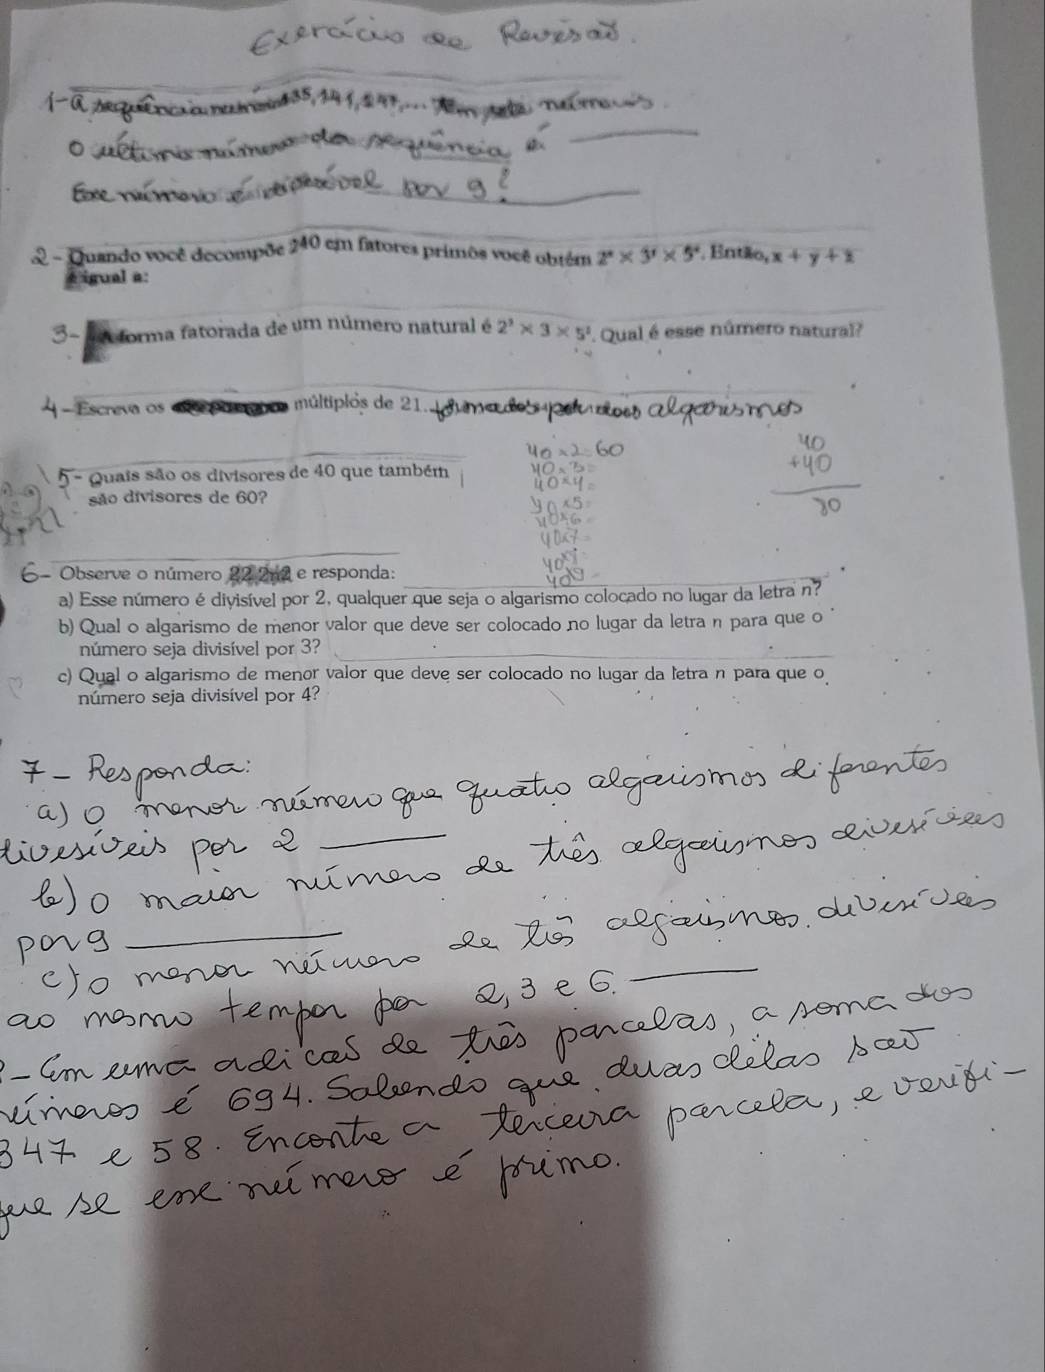 Exercício de Revisão.
1- A sequência numérica 135, 141, 147, ... tem sete números.
O último número da sequência é
Esse número é divisível por 9?
2 - Quando você decompõe 240 em fatores primos você obtém 2ˣ × 3ʸ × 5ᶻ. Então, x + y + z
é igual a:
3- A forma fatorada de um número natural é 2³ × 3 × 5². Qual é esse número natural?
4 - Escreva os múltiplos de 21 formados por dois algarismos
40×2=60
40×3=
40×4=
40×5=
40×6=
40×7=
40×8=
40×9=
40
+40
80
5 - Quais são os divisores de 40 que também
são divisores de 60?
6- Observe o número 22 2n2 e responda:
a) Esse número é divisível por 2, qualquer que seja o algarismo colocado no lugar da letra n?
b) Qual o algarismo de menor valor que deve ser colocado no lugar da letra n para que o
número seja divisível por 3?
c) Qual o algarismo de menor valor que deve ser colocado no lugar da letra n para que o
número seja divisível por 4?
7- Responda:
a) O menor número que quatro algarismos diferentes
divesíveis por 2
b) O maior número de três algarismos divesíveis
por 9
c) O menor número de três algarismos divesíveis
ao mesmo tempor por 2, 3 e 6.
- Em uma adicão de três parcelas, a soma dos
números é 694. Sabendo que duas delas são
347 e 58. Encontre a terceira parcela, e verifi-
que se esse número é primo.